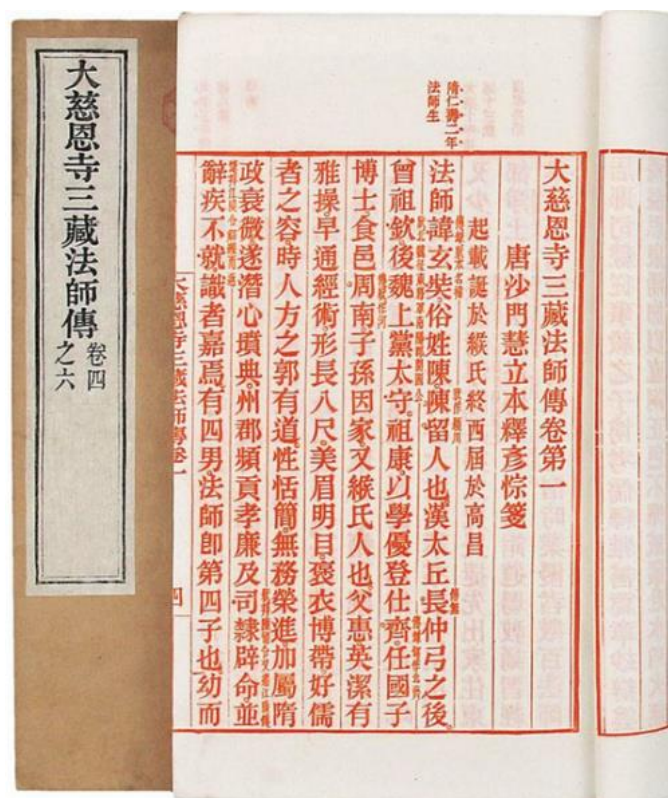 大慈恩寺三藏法師傳
卷四
之六
隋仁壽二年
法師生
大慈恩寺三藏法師傳卷第一
唐沙門慧立本釋彥悰箋
起載誕於緱氏終西屆於高昌
法師諱玄奘俗姓陳陳留人也漢太丘長仲弓之後
曾祖欽後魏上黨太守祖康以學優登仕齊任國子
博士食邑周南子孫因家又緱氏人也父惠英潔有
雅操早通經術形長八尺美眉明目褒衣博帶好儒
者之容時人方之郭有道性恬簡無務榮進加屬隋
政衰微遂潛心墳典州郡頻貢孝廉及司隸辟命並
辭疾不就識者嘉焉有四男法師卽第四子也幼而
大慈恩寺三藏法師傳卷一
四